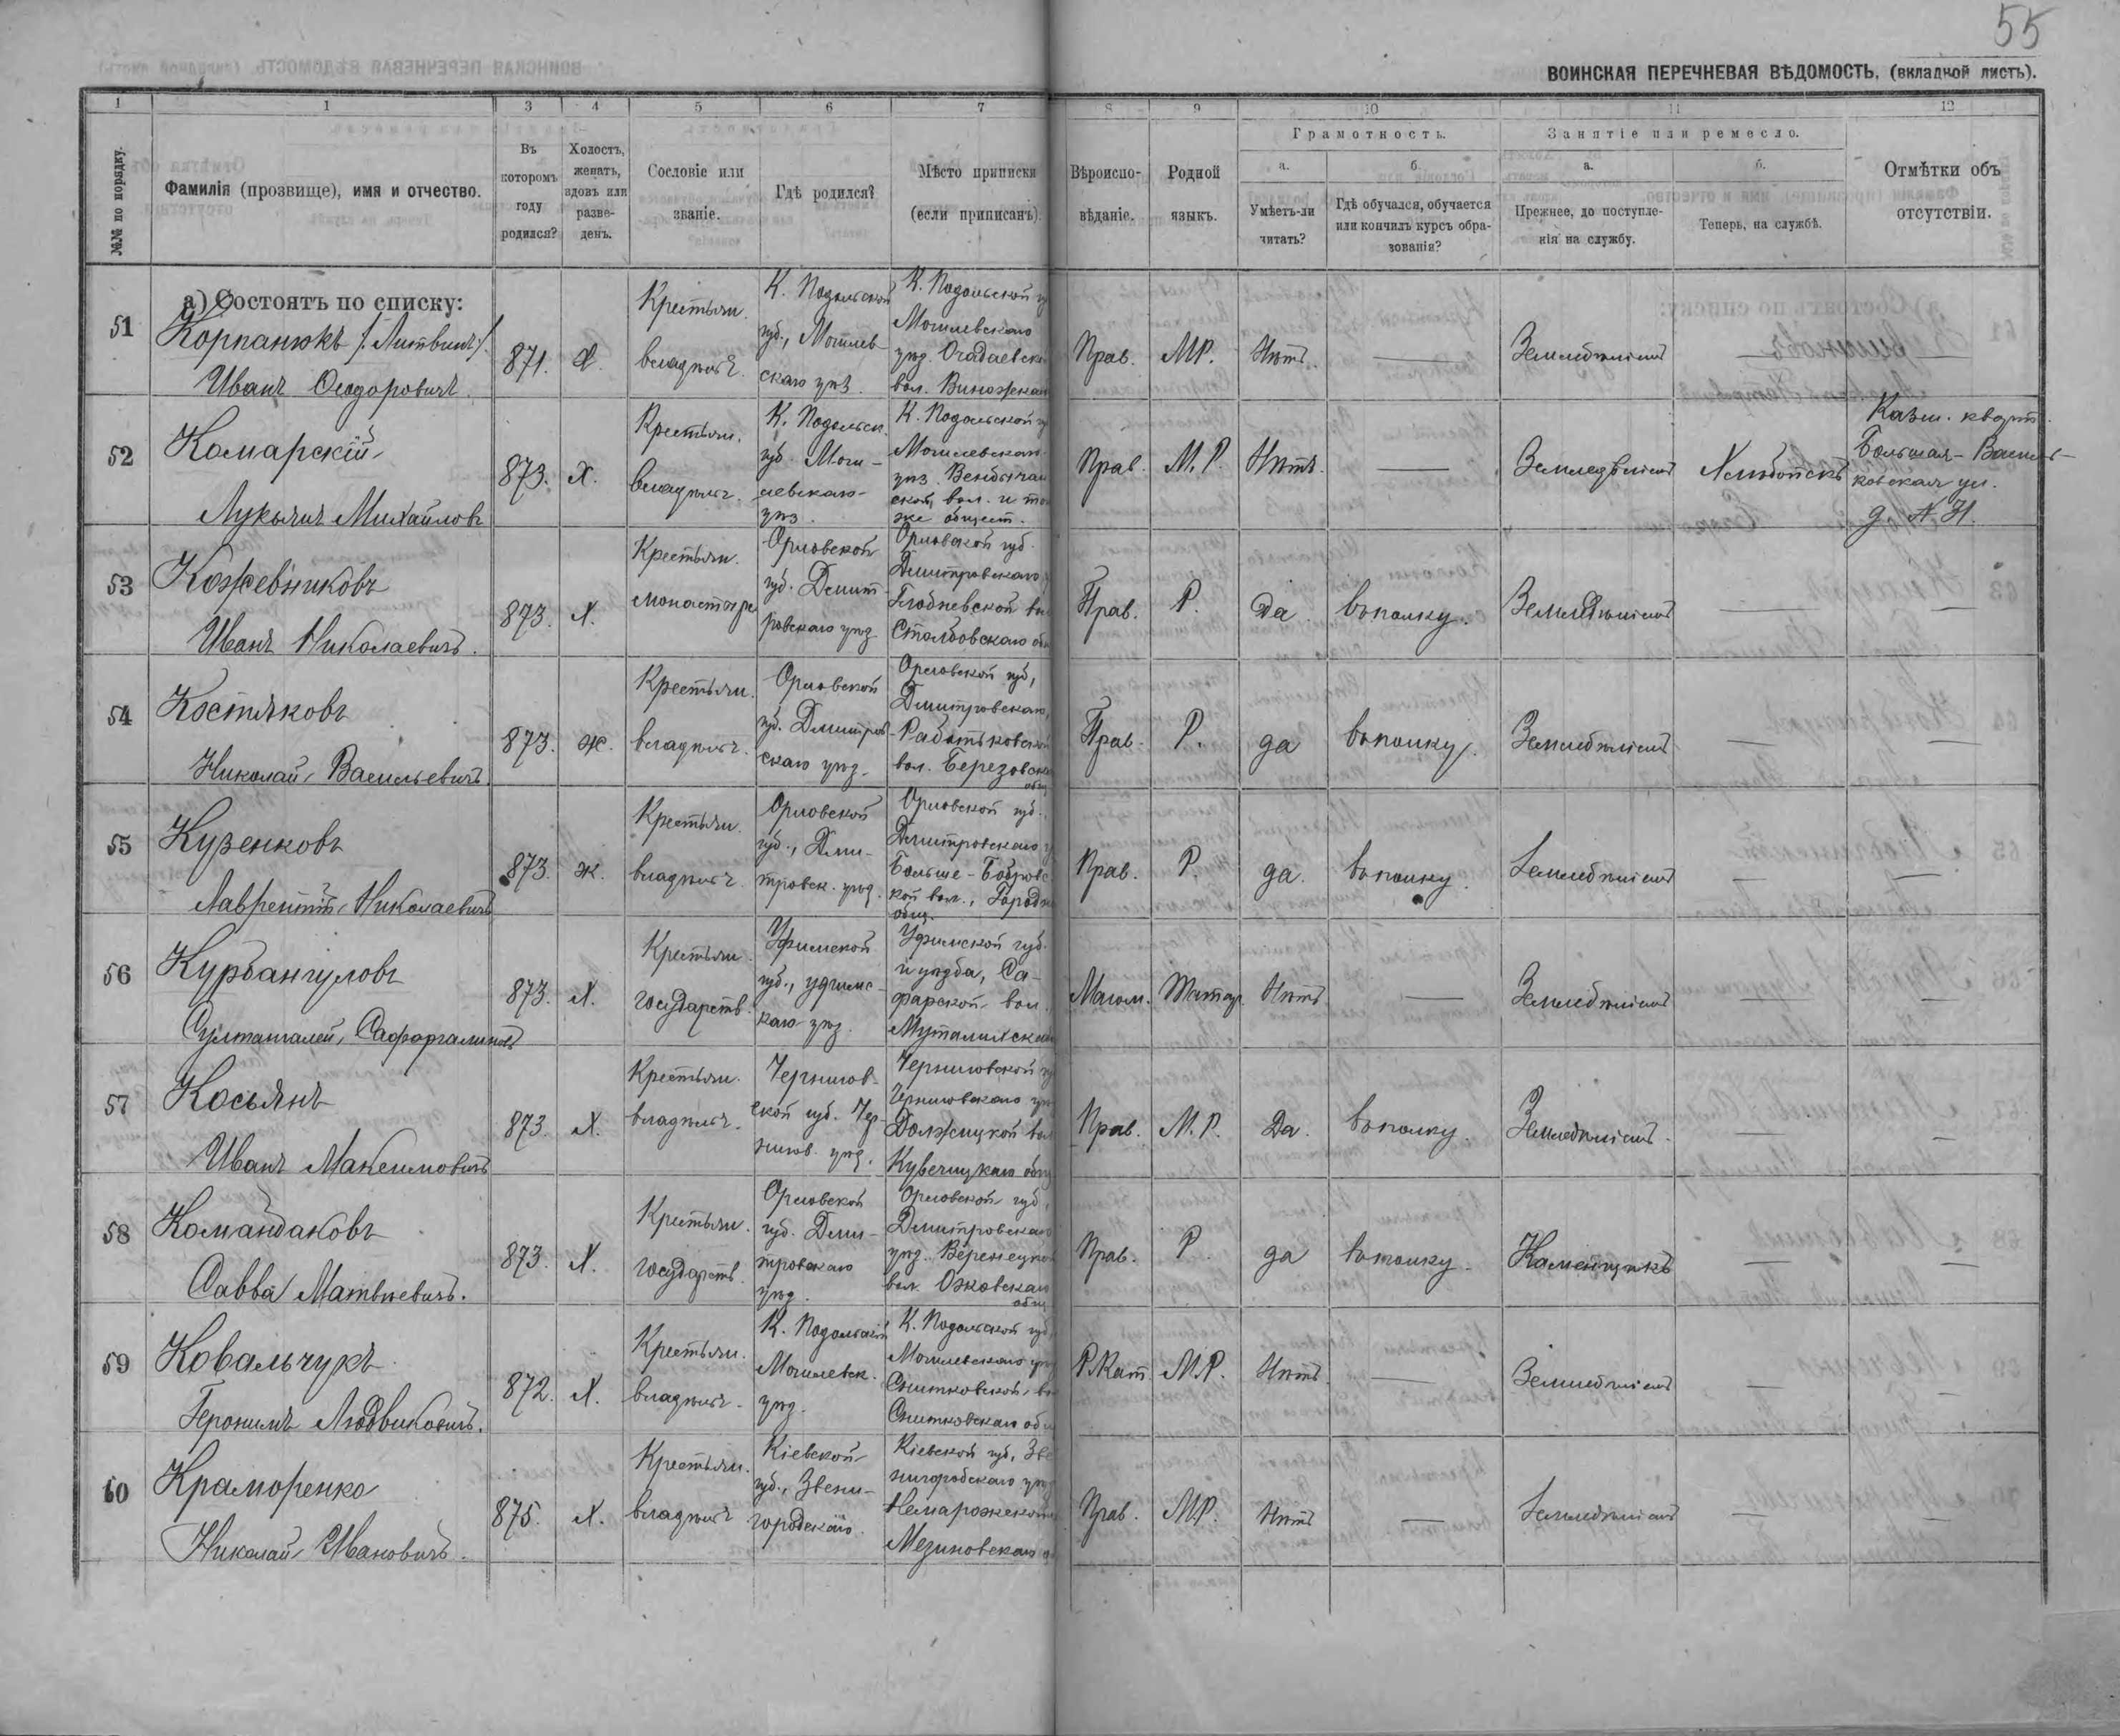 55
ВОИНСКАЯ ПЕРЕЧНЕВАЯ ВѢДОМОСТЬ, (вкладной листъ).
1 1 3 4 5 6 7 8 9 10 11 12
№№ по порядку.
Фамилія (прозвище), имя и отчество.
Въ которомъ году родился?
Холостъ, женатъ, вдовъ или разведенъ.
Сословіе или званіе.
Гдѣ родился?
Мѣсто приписки (если приписанъ).
Вѣроисповѣданіе.
Родной языкъ.
Грамотность.
а. Умѣетъ-ли читать?
б. Гдѣ обучался, обучается или кончилъ курсъ образованія?
Занятіе или ремесло.
а. Прежнее, до поступленія на службу.
б. Теперь, на службѣ.
Отмѣтки объ отсутствіи.
а) Состоятъ по списку:
51
Корпанюкъ /:Литвинъ:/
Иванъ Ѳеодоровичъ
871.
Крестьян.
владѣльч.
К. Подольской
губ., Могилев-
скаго уѣз.
К. Подольской
Могилевскаго
уѣзд.
вол.
Прав. М.Р. Нѣтъ — Земледѣліемъ — —
52
Комарскій
Лукьянъ Михайловъ
873. Х.
Крестьян.
владѣльч.
К. Подольск.
губ. Моги-
левскаго
уѣз.
К. Подольской
Могилевскаго
уѣз. Вендычан
ской вол. и той
же общест.
Прав. М.Р. Нѣтъ. — Земледѣліемъ Хлѣбопекъ
Казен. кварт.
Большая-Василь-
ковская ул.
53
Кожевниковъ
Иванъ Николаевичъ.
873. Х.
Крестьян.
Орловской
губ. Дмит-
ровскаго уѣзд.
Орловской губ.
Дмитровскаго
Столбовскаго
Прав. Р. Да въ полку. Земледѣліемъ — —
54
Костяковъ
Николай Васильевичъ.
873. Ж.
Крестьян.
владѣльч.
Орловской
губ. Дмитров
скаго уѣзд.
Орловской губ,
Дмитровскаго,
вол. Березовска
общ.
Прав. Р. да въ полку. Земледѣліемъ — —
55
Кузенковъ
Лаврентій Николаевичъ
873. Ж.
Крестьян.
владѣльч.
Орловской
губ., Дми-
тровск. уѣзд.
Орловской губ.
Дмитровскаго
Больше-Бобровс
кой вол.,
общ.
Прав. Р. да. въ полку. Земледѣліемъ — —
56
Курбангуловъ
Султангалей Сафаргалиновъ
873. Х.
Крестьян.
государств.
Уфимской
губ., Уфимс-
каго уѣз.
Уфимской губ.
и уѣзда, Са-
фарской вол.
Магом. Татар. Нѣтъ — Земледѣліемъ — —
57
Косьянъ
Иванъ Максимовичъ
873. Х.
Крестьян.
владѣльч.
Чернигов-
ской губ. Чер-
нигов. уѣзд.
Черниговской
Черниговскаго
Кувечицкаго
Прав. М.Р. Да. въ полку. Земледѣліемъ. — —
58
Командаковъ
Савва Матвѣевичъ.
873. Х.
Крестьян.
государств.
Орловской
губ. Дми-
тровскаго
уѣзд.
Орловской губ,
Дмитровскаго
уѣзд.
вол.
общ.
Прав. Р. да въ полку. Каменщикъ — —
59
Ковальчукъ
Геронимъ Людвиковичъ.
872. Х.
Крестьян.
владѣльч.
К. Подольской
Могилевск.
уѣзд.
К. Подольской губ,
Могилевскаго
Снитковской
Снитковскаго
Р.Кат. М.Р. Нѣтъ. — Земледѣліемъ — —
60
Краморенко
Николай Ивановичъ.
875. Х.
Крестьян.
владѣльч
Кіевской
губ., Звени-
городскаго.
Кіевской губ, Зве
нигородскаго
Прав. М.Р. Нѣтъ — Земледѣліемъ — —